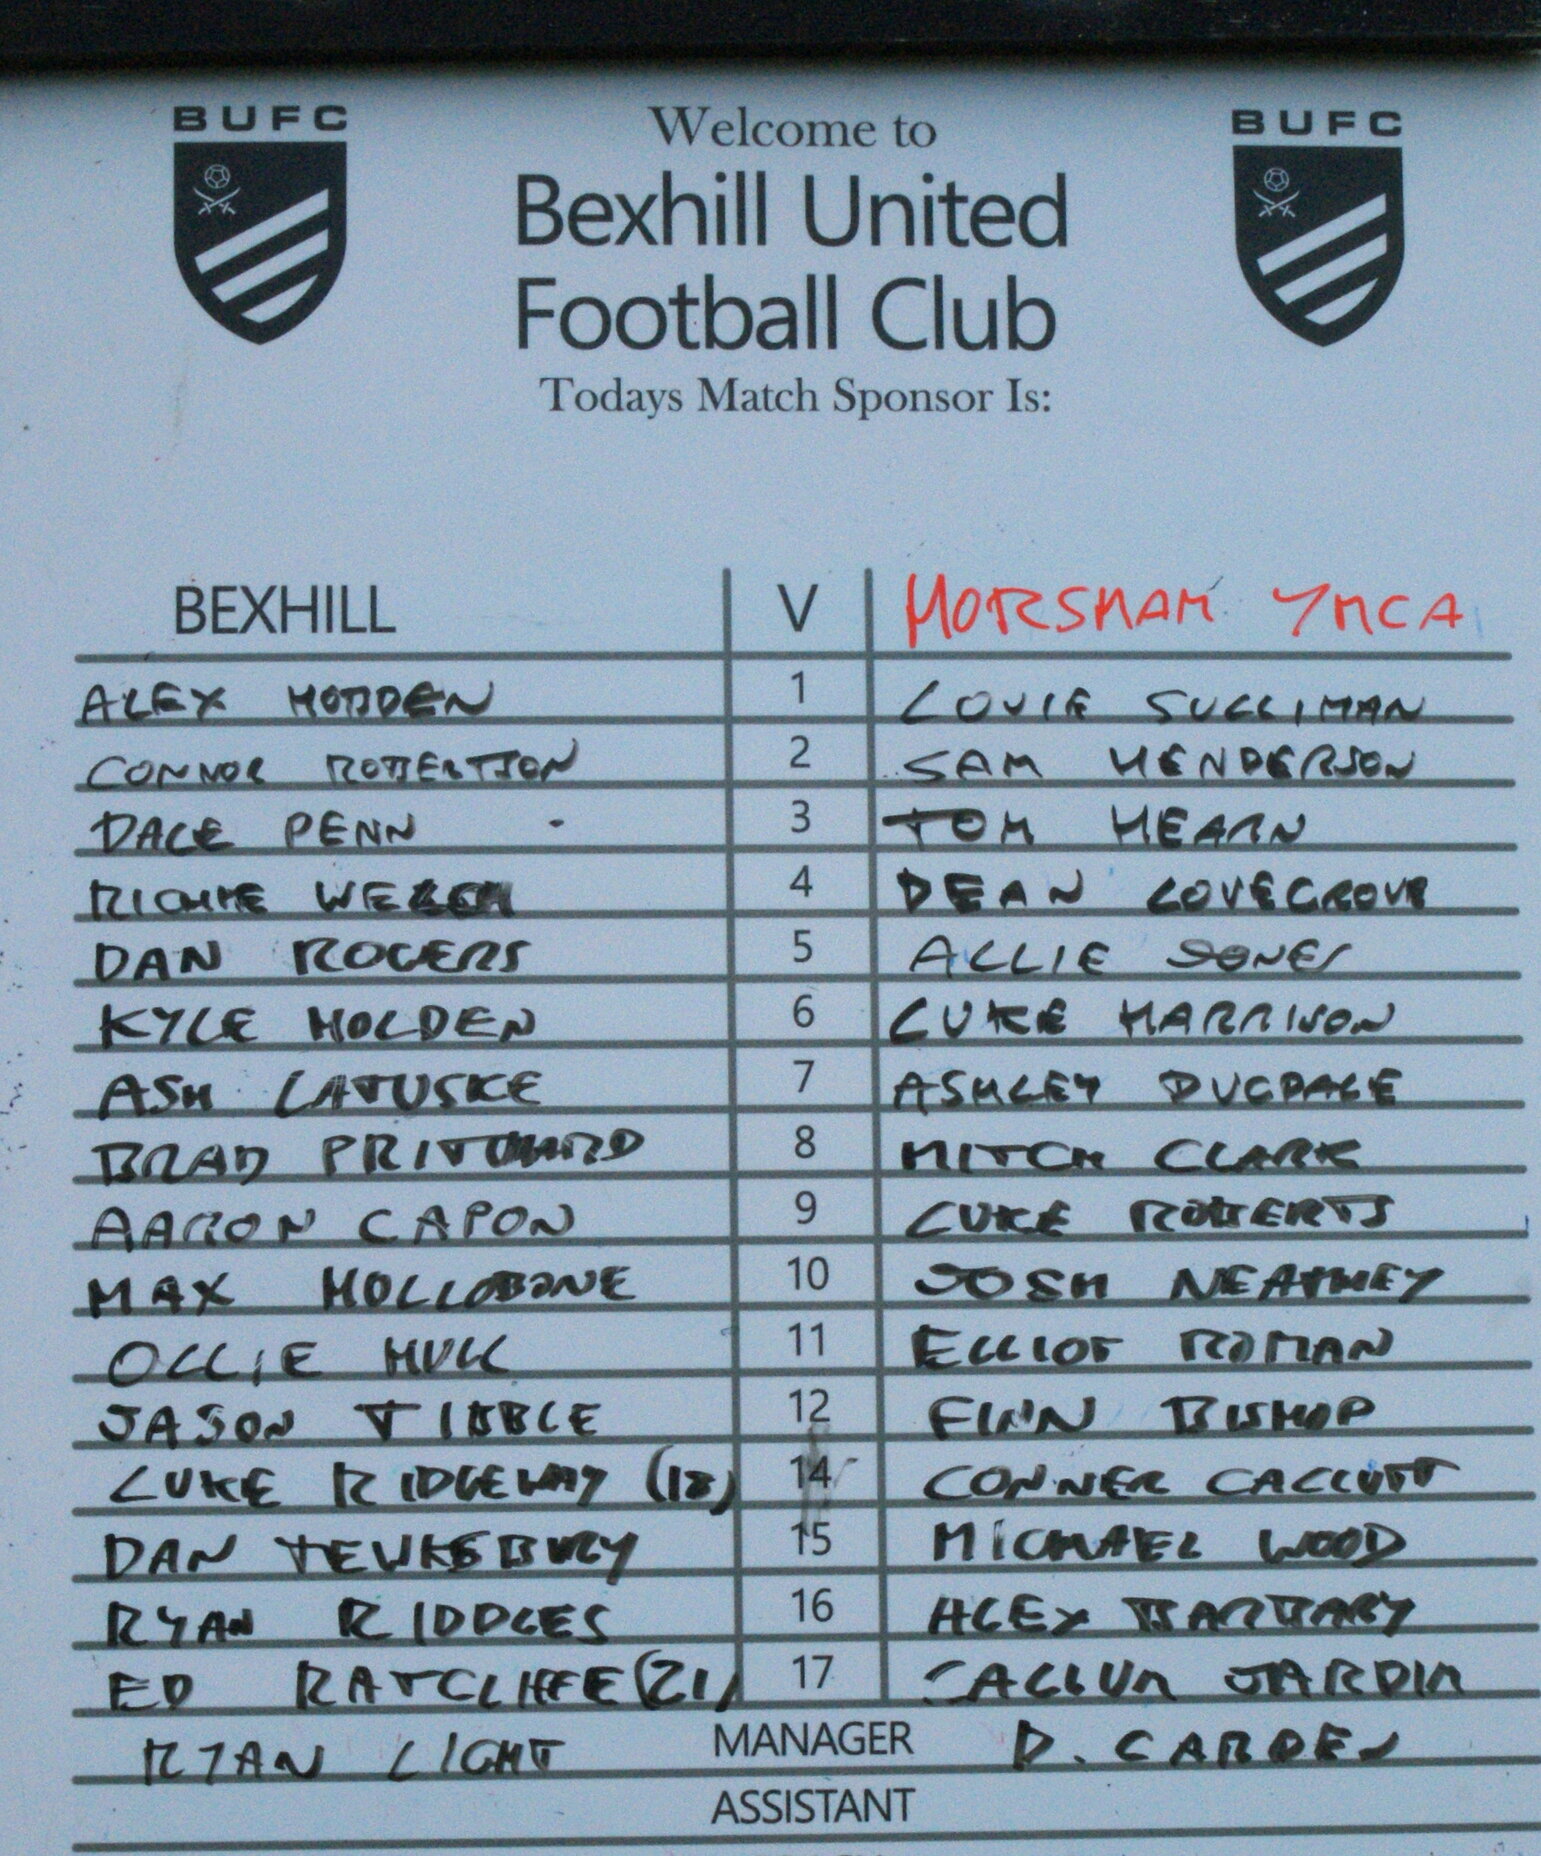 BUFC Welcome to BUFC
Bexhill United
Football Club
Todays Match Sponsor Is:
BEXHILL V HORSHAM YMCA
ALEX HOBDEN 1 LOUIE SULLIMAN
CONNOR ROBERTSON 2 SAM HENDERSON
DALE PENN 3 TOM HEARN
RICHIE WELCH 4 DEAN LOVEGROVE
DAN ROGERS 5 ALLIE JONES
KYLE HOLDEN 6 LUKE HARRISON
ASH LATUSKE 7 ASHLEY DUGDALE
BRAD PRITCHARD 8 MITCH CLARK
AARON CAPON 9 LUKE ROBERTS
MAX HOLLOBONE 10 JOSH NEATHEY
OLLIE HULL 11 ELLIOT ROMAN
JASON TIBBLE 12 FINN BISHOP
LUKE RIDGEWAY (18) 14 CONNER CALLCUTT
DAN TEWKSBURY 15 MICHAEL WOOD
RYAN RIDDLES 16 ALEX BARBARY
ED RATCLIFFE (21) 17 CALLUM JARDIM
RYAN LIGHT MANAGER D. CARDEN
ASSISTANT